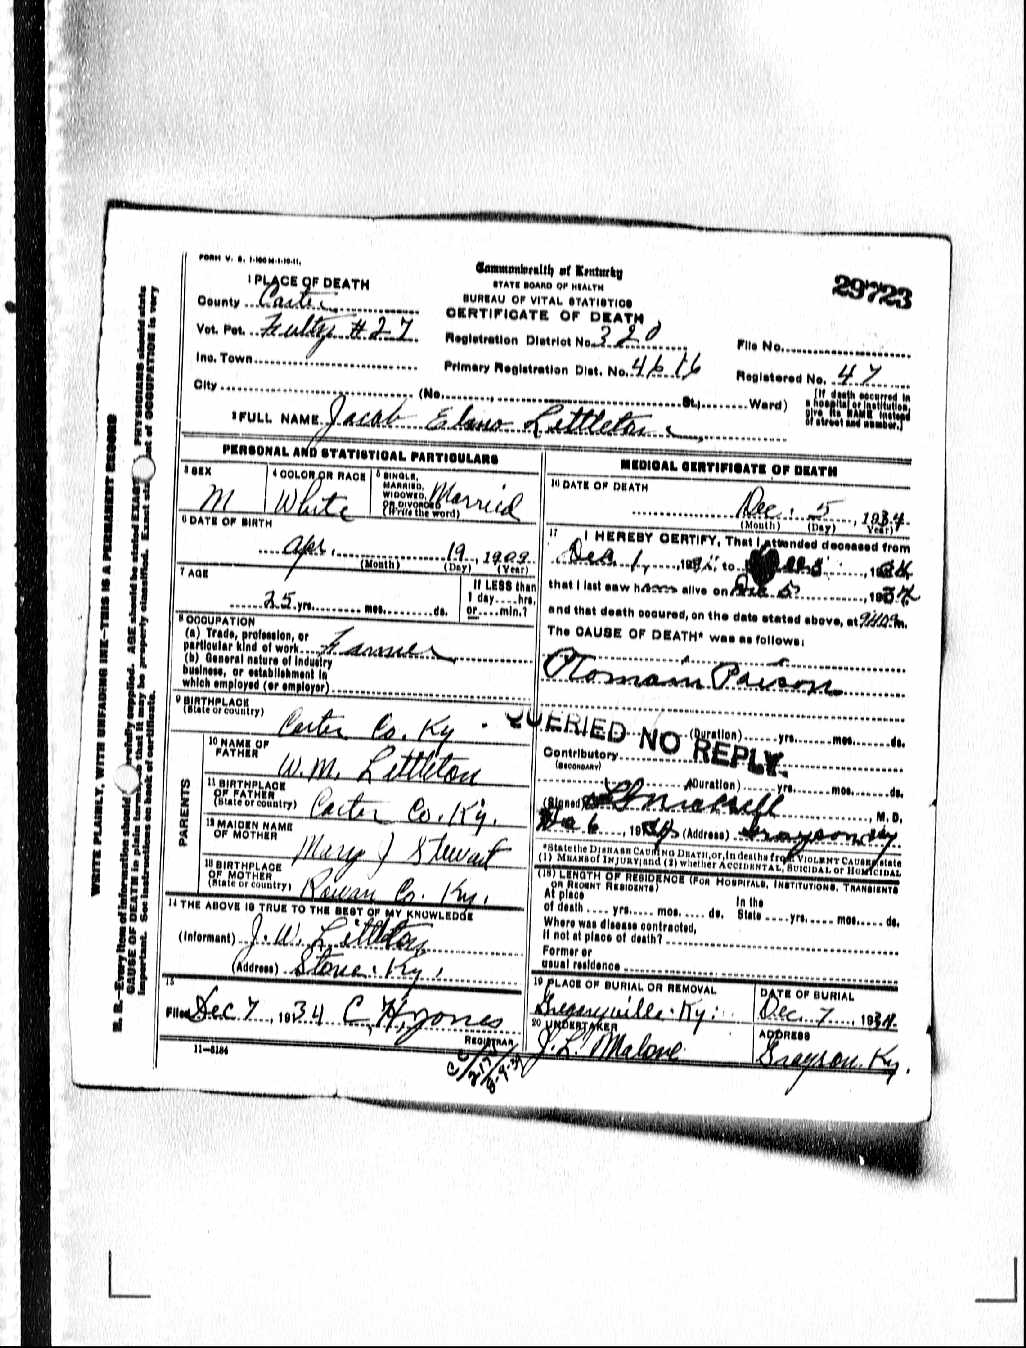 FORM V. S. 1-100 M-1-10-11.
Commonwealth of Kentucky
STATE BOARD OF HEALTH
BUREAU OF VITAL STATISTICS
CERTIFICATE OF DEATH
29723
1 PLACE OF DEATH
County Carter
Vot. Pct. Fultz #27
Inc. Town
City (No. , St.; Ward)
Registration District No. 320
Primary Registration Dist. No. 4616
File No.
Registered No. 47
[If death occurred in a hospital or institution, give its NAME instead of street and number.]
2 FULL NAME Jacob Elmo Littleton
PERSONAL AND STATISTICAL PARTICULARS
3 SEX M
4 COLOR OR RACE White
5 SINGLE, MARRIED, WIDOWED, OR DIVORCED (Write the word) Married
6 DATE OF BIRTH
Apr. 19, 1909
(Month) (Day) (Year)
7 AGE
25 yrs. mos. ds.
If LESS than 1 day hrs. or min.?
8 OCCUPATION
(a) Trade, profession, or particular kind of work Farmer
(b) General nature of industry business, or establishment in which employed (or employer)
9 BIRTHPLACE (State or country) Carter Co. Ky
PARENTS
10 NAME OF FATHER W. M. Littleton
11 BIRTHPLACE OF FATHER (State or country) Carter Co. Ky.
12 MAIDEN NAME OF MOTHER Mary J Stewart
13 BIRTHPLACE OF MOTHER (State or country) Rowan Co. Ky.
14 THE ABOVE IS TRUE TO THE BEST OF MY KNOWLEDGE
(Informant) J. W. Littleton
(Address) Stone. Ky.
15
Filed Dec 7, 1934 C. H. Jones
REGISTRAR
11—5184
MEDICAL CERTIFICATE OF DEATH
16 DATE OF DEATH
Dec. 5, 1934
(Month) (Day) (Year)
17 I HEREBY CERTIFY, That I attended deceased from
Dec 1, 193 , to 5, 1934
that I last saw h alive on Dec 5, 1934
and that death occured, on the date stated above, at m.
The CAUSE OF DEATH* was as follows:
Ptomain Poison
QUERIED NO REPLY.
(Duration) yrs. mos. ds.
Contributory
(SECONDARY)
(Duration) yrs. mos. ds.
(Signed) , M. D.
Dec 6, 1934 (Address) Grayson Ky
*State the DISEASE CAUSING DEATH, or, in deaths from VIOLENT CAUSES, state
(1) MEANS of INJURY; and (2) whether ACCIDENTAL, SUICIDAL or HOMICIDAL
(18) LENGTH OF RESIDENCE (FOR HOSPITALS, INSTITUTIONS, TRANSIENTS
OR RECENT RESIDENTS)
At place of death yrs. mos. ds.
In the State yrs. mos. ds.
Where was disease contracted,
if not at place of death?
Former or
usual residence
19 PLACE OF BURIAL OR REMOVAL Gregoryville. Ky.
DATE OF BURIAL Dec. 7, 1934
20 UNDERTAKER J. L. Malone
ADDRESS Grayson. Ky.
WRITE PLAINLY, WITH UNFADING INK—THIS IS A PERMANENT RECORD
N. B.—Every item of information should be carefully supplied. AGE should be stated EXACTLY. PHYSICIANS should state
CAUSE OF DEATH in plain terms, so that it may be properly classified. Exact statement of OCCUPATION is very
important. See instructions on back of certificate.